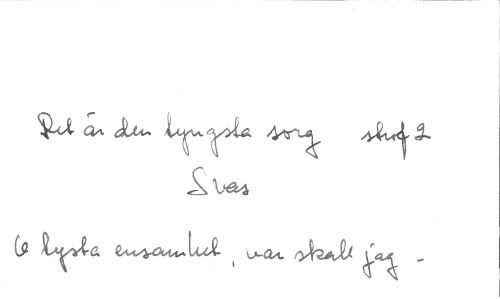 Det är den tyngsta sorg strof 2
Svas
O tysta ensamhet, var skall jag -